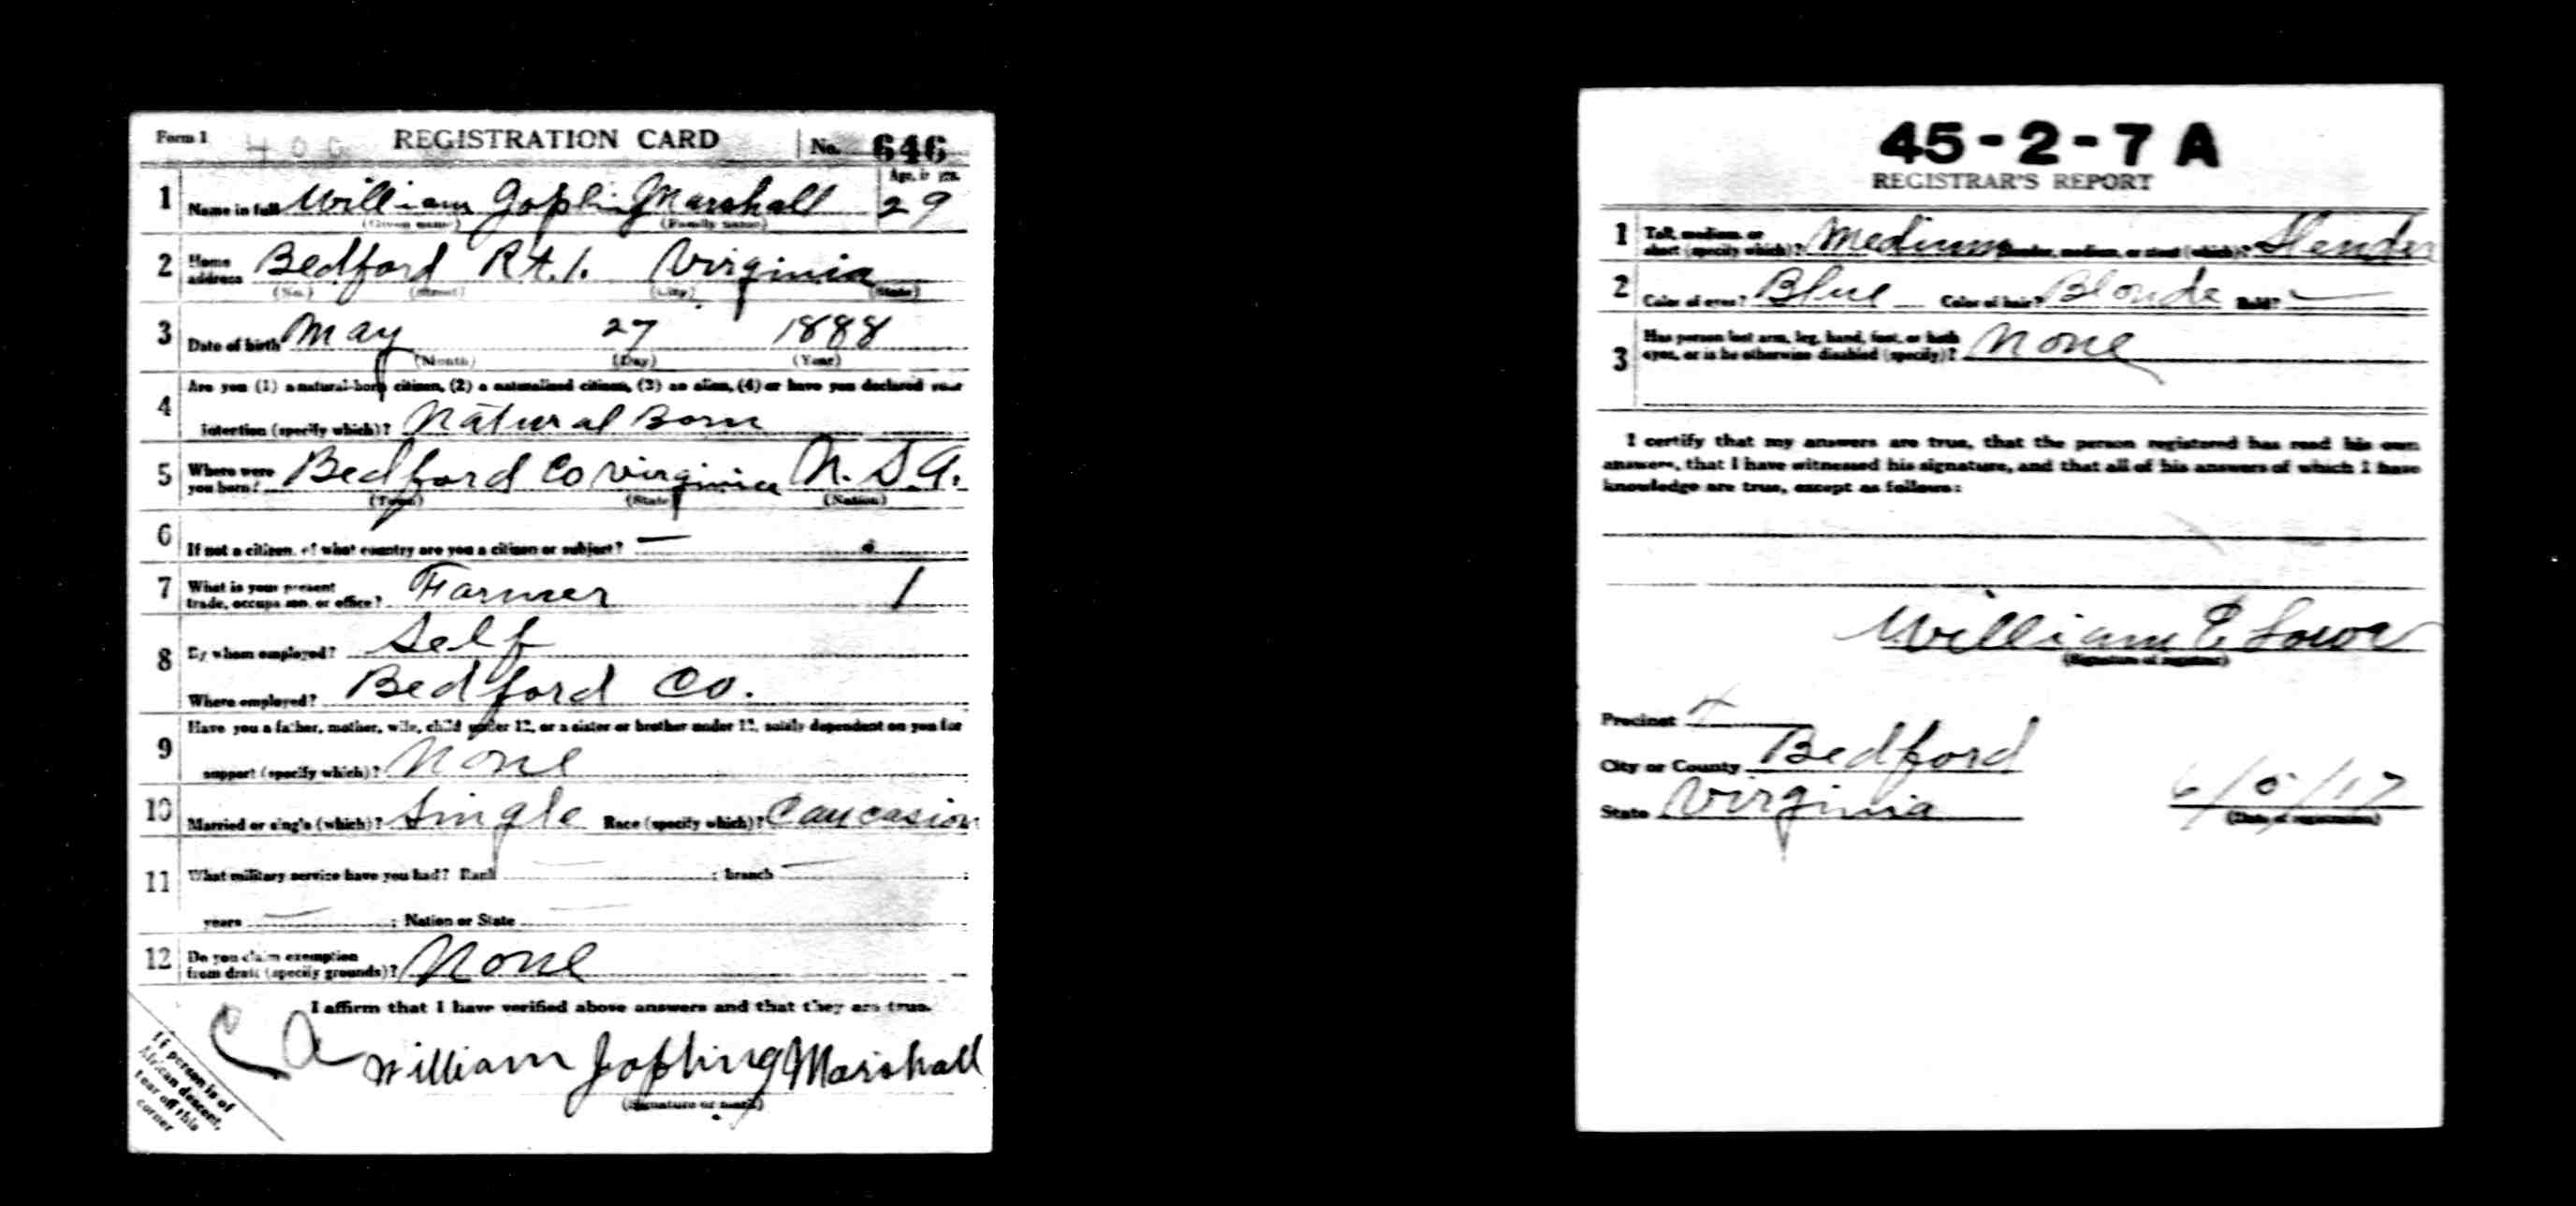 Form 1 REGISTRATION CARD No. 646
Age, in yrs.
1 Name in full William Joplin Marshall 29
(Given name) (Family name)
2 Home address Bedford Rt. 1. Virginia
(No.) (Street) (City) (State)
3 Date of birth May 27 1888
(Month) (Day) (Year)
4 Are you (1) a natural-born citizen, (2) a naturalized citizen, (3) an alien, (4) or have you declared your
intention (specify which)? Natural Born
5 Where were you born? Bedford Co Virginia U.S.A.
(Town) (State) (Nation)
6 If not a citizen, of what country are you a citizen or subject? —
7 What is your present trade, occupation, or office? Farmer 1
8 By whom employed? Self
Where employed? Bedford Co.
9 Have you a father, mother, wife, child under 12, or a sister or brother under 12, solely dependent on you for
support (specify which)? None
10 Married or single (which)? Single Race (specify which)? Caucasion
11 What military service have you had? Rank — ; branch — ;
years — ; Nation or State —
12 Do you claim exemption from draft (specify grounds)? None
I affirm that I have verified above answers and that they are true.
William Jopling Marshall
(Signature or mark)
If person is of
African descent,
tear off this
corner
45-2-7 A
REGISTRAR'S REPORT
1 Tall, medium, or short (specify which)? Medium Slender, medium, or stout (which)? Slender
2 Color of eyes? Blue Color of hair? Blonde Bald? —
3 Has person lost arm, leg, hand, foot, or both
eyes, or is he otherwise disabled (specify)? None
I certify that my answers are true, that the person registered has read his own
answers, that I have witnessed his signature, and that all of his answers of which I have
knowledge are true, except as follows:
William E Lowe
(Signature of registrar)
Precinct
City or County Bedford
State Virginia 6/5/17
(Date of registration)